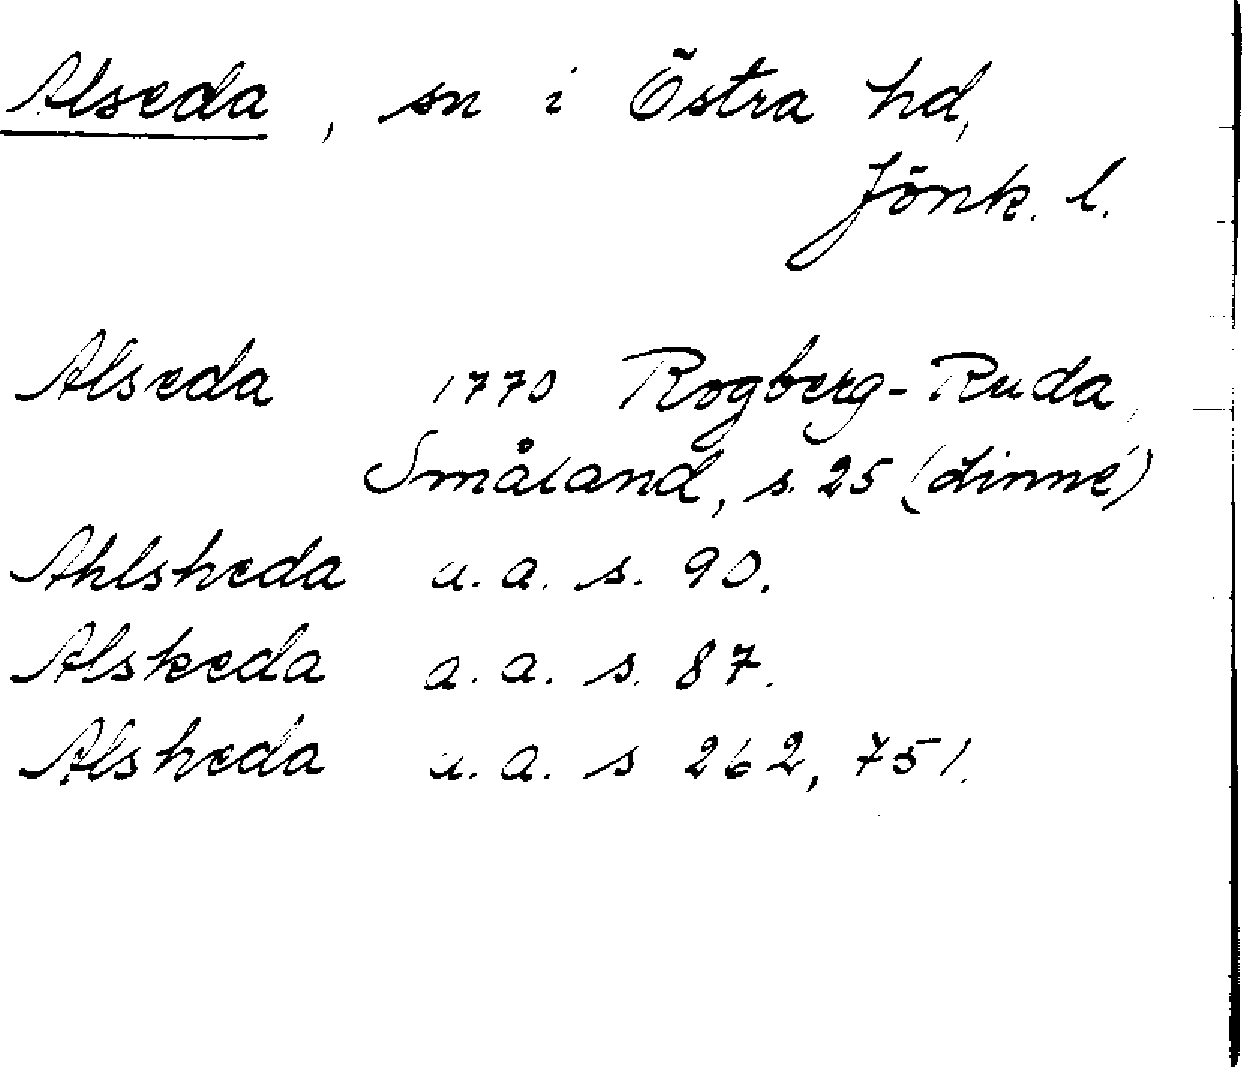 Alseda, sn i Östra hd,
Jönk. l.
Alseda 1770 Rogberg-Ruda,
Småland, s. 25 (Linné)
Ahlsheda a. a. s. 90.
Alskeda a. a. s. 87.
Alsheda a. a. s 262, 751.